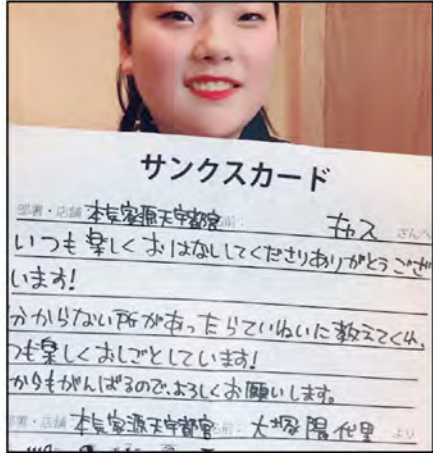 サンクスカード
部署・店舗 本気家源天宇都宮 名前: キャス さんへ
いつも楽しくおはなししてくださりありがとうござ
います!
分からない所があったらていねいに教えてくれ、
つも楽しくおしごとしています!
からもがんばるので、よろしくお願いします。
部署・店舗 本気家源天宇都宮 名前: 大塚陽代里 より